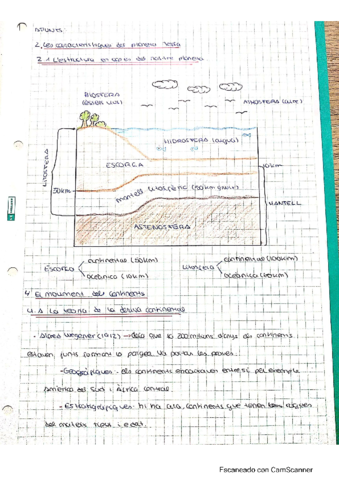 APUNTS
2. Les característiques del planeta Terra
2.1 L'estructura en capes del nostre planeta
BIOSFERA
(éssers vius)
ATMOSFERA (aire)
HIDROSFERA (aigua)
LITOSFERA
ESCORÇA
10km
50km
mantell litosfèric
MANTELL
ASTENOSFERA
ESCORÇA
continental
oceànica (10km)
LITOSFERA
continental (100km)
oceànica
4. El moviment dels continents
4.1 La teoria de la deriva continental
- Alfred Wegener (1912) deia que fa 200 milions d'anys els continents
estaven junts formant la pangea. Va aportar les proves:
- Geogràfiques: els continents encaixaven entre sí, per exemple
Amèrica del Sud i Àfrica
- Estratigràfiques: hi ha continents que tenen
del mateix tipus i edat.
Escaneado con CamScanner